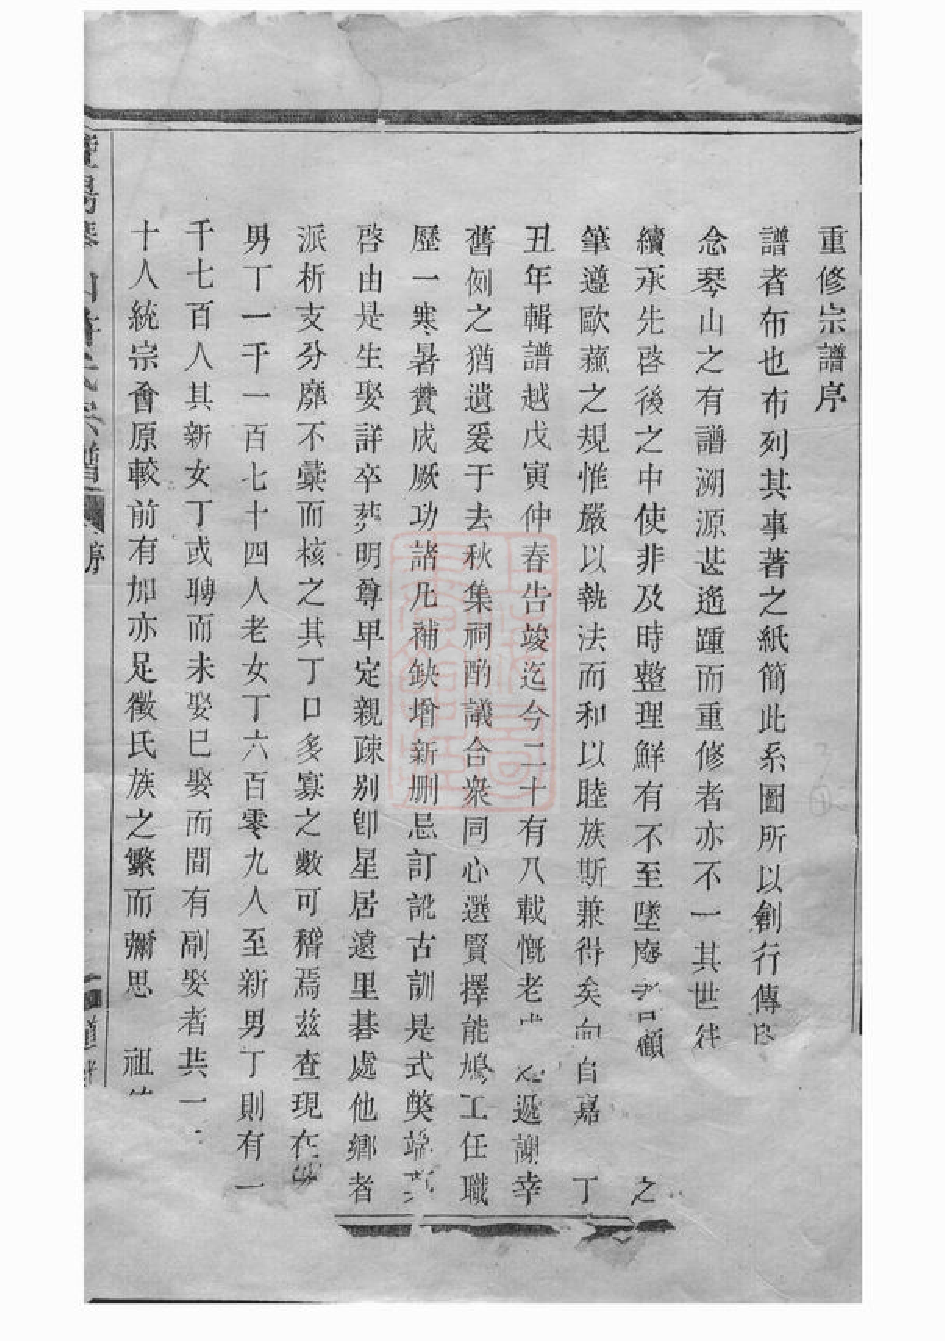 重修宗譜序
譜者布也布列其事著之紙簡此系圖所以創行傳
念琴山之有譜溯源甚遙踵而重修者亦不一其世
續承先啓後之中使非及時整理鮮有不至墜廢者顧之
筆遵歐蘓之規惟嚴以執法而和以睦族斯兼得矣自嘉丁
丑年輯譜越戊寅仲春告竣迄今二十有八載慨老遞謝幸
舊例之猶遺爰于去秋集祠酌議合衆同心選賢擇能鳩工任職
歷一寒暑賛成厥功諸凡補缺增新刪忌訂訛古訓是式獘端
啓由是生娶詳卒塟明尊卑定親疎别卽星居遠里碁處他鄉者
派析支分靡不彙而核之其丁口多寡之數可稽焉茲查現在
男丁一千一百七十四人老女丁六百零九人至新男丁則有一
千七百人其新女丁或聘而未娶巳娶而間有副娶者共一
十人統宗會原較前有加亦足徵氏族之繁而彌思 祖